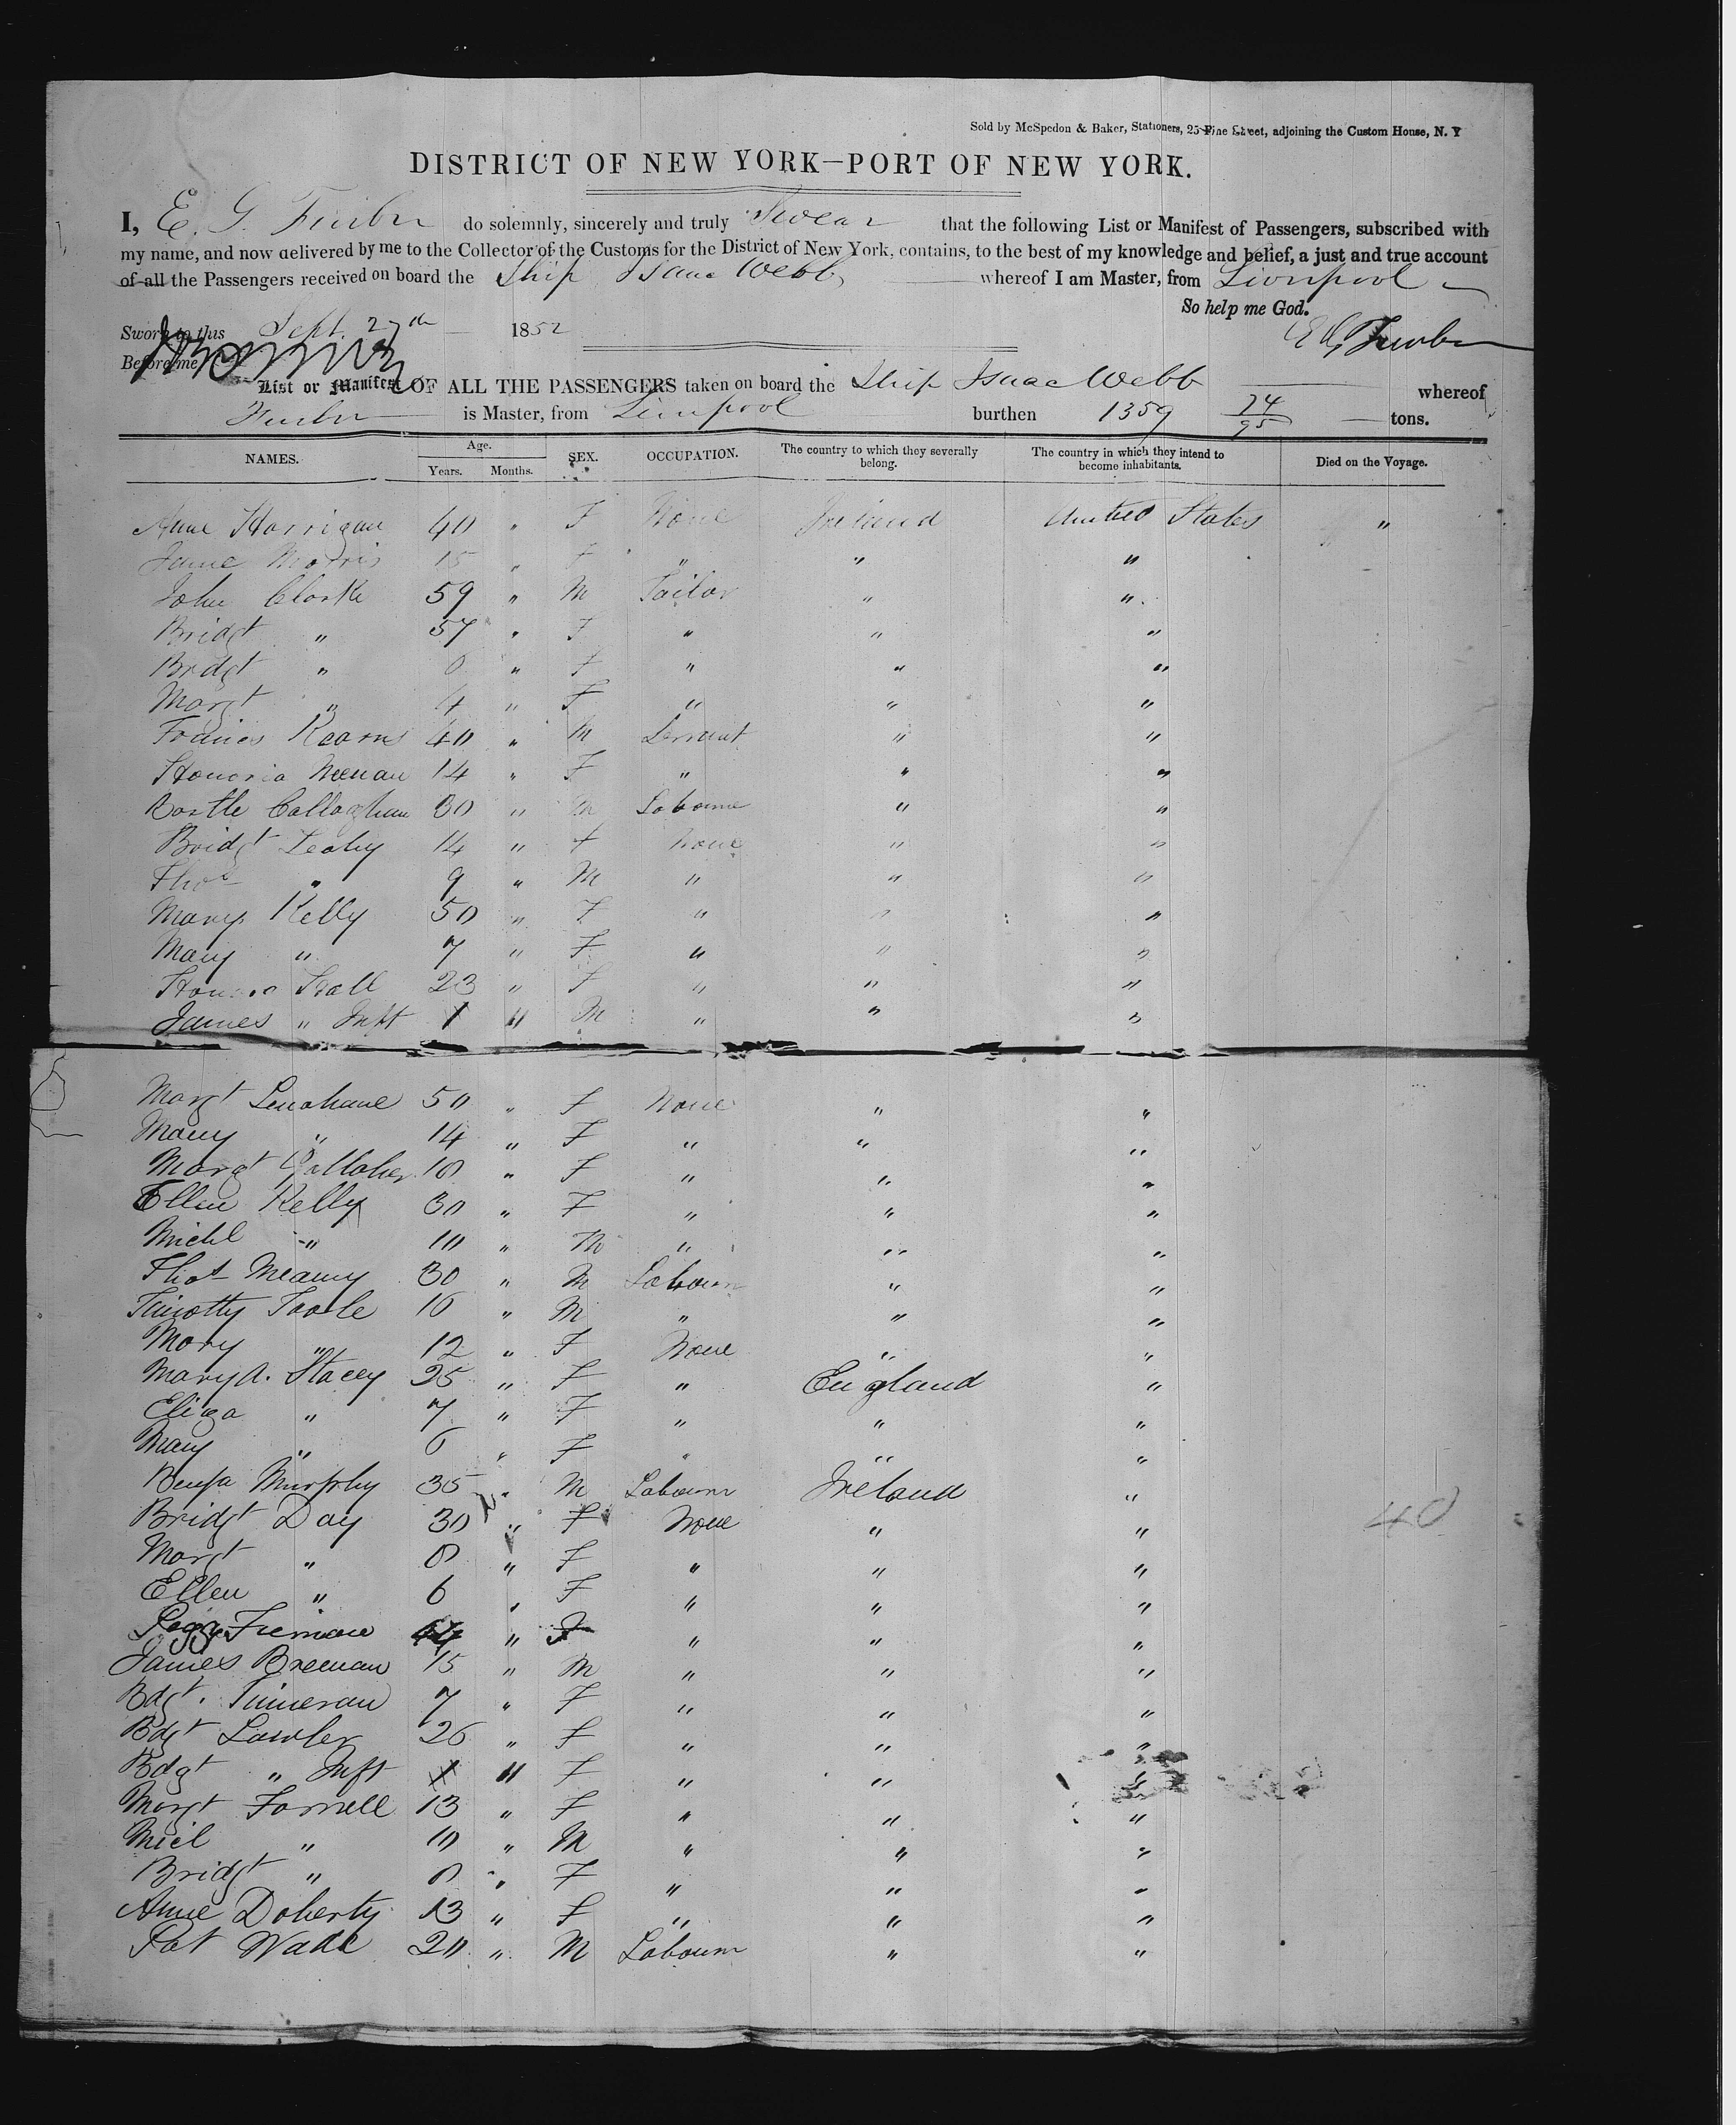 Sold by McSpedon & Baker, Stationers, 25 Pine Street, adjoining the Custom House, N. Y
DISTRICT OF NEW YORK—PORT OF NEW YORK.
I, E. G. Furber do solemnly, sincerely and truly Swear that the following List or Manifest of Passengers, subscribed with
my name, and now delivered by me to the Collector of the Customs for the District of New York, contains, to the best of my knowledge and belief, a just and true account
of all the Passengers received on board the Ship Isaac Webb whereof I am Master, from Liverpool
So help me God.
Sworn to this Sept. 27th 1852 E G Furber
Before me
List or Manifest OF ALL THE PASSENGERS taken on board the Ship Isaac Webb whereof
Furber is Master, from Liverpool burthen 1359 74/95 tons.
NAMES. Age. Years. Months. SEX. OCCUPATION. The country to which they severally belong. The country in which they intend to become inhabitants. Died on the Voyage.
Anne Horrigan 40 " F None Ireland United States "
Jane Morris 15 " F " " "
John Clarke 59 " M Tailor " "
Bridgt " 57 " F " " "
Bridgt " 8 " F " " "
Margt " 4 " F " " "
Francis Kearns 40 " M Servant " "
Honoria Meenan 14 " F " " "
Callaghan 30 " M Labourer " "
Bridgt Leahy 14 " F None " "
Thos " 9 " M " " "
Mary Kelly 50 " F " " "
Mary " 7 " F " " "
Honora 23 " F " " "
James " Inft 1 11 M " " "
Margt Lenahane 50 " F None " "
Mary " 14 " F " " "
Margt Gallaher 18 " F " " "
Ellen Kelly 30 " F " " "
Michl " 10 " M " " "
Thos 30 " M Labourer " "
Timothy Toole 16 " M " " "
Mary " 12 " F None " "
Mary A. Stacey 25 " F " England "
Eliza " 7 " F " " "
Mary " 6 " F " " "
Murphy 35 " M Labourer Ireland "
Bridgt Day 30 " F None " "
Margt " 8 " F " " "
Ellen " 6 " F " " "
Peggy " F " " "
James Brennan 15 " M " " "
Bdgt. 7 " F " " "
Bdgt Lawler 26 " F " " "
Bdgt " Inft 1 11 F " " "
Margt Farrell 13 " F " " "
Micl " 10 " M " " "
Bridgt " 8 " F " " "
Anne Doherty 13 " F " " "
Pat Wade 20 " M Labourer " "
40